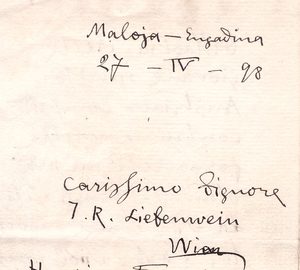 Maloja - Engadina
27 - IV - 98
Carissimo Signore
J. R. Liebenwein
Wien